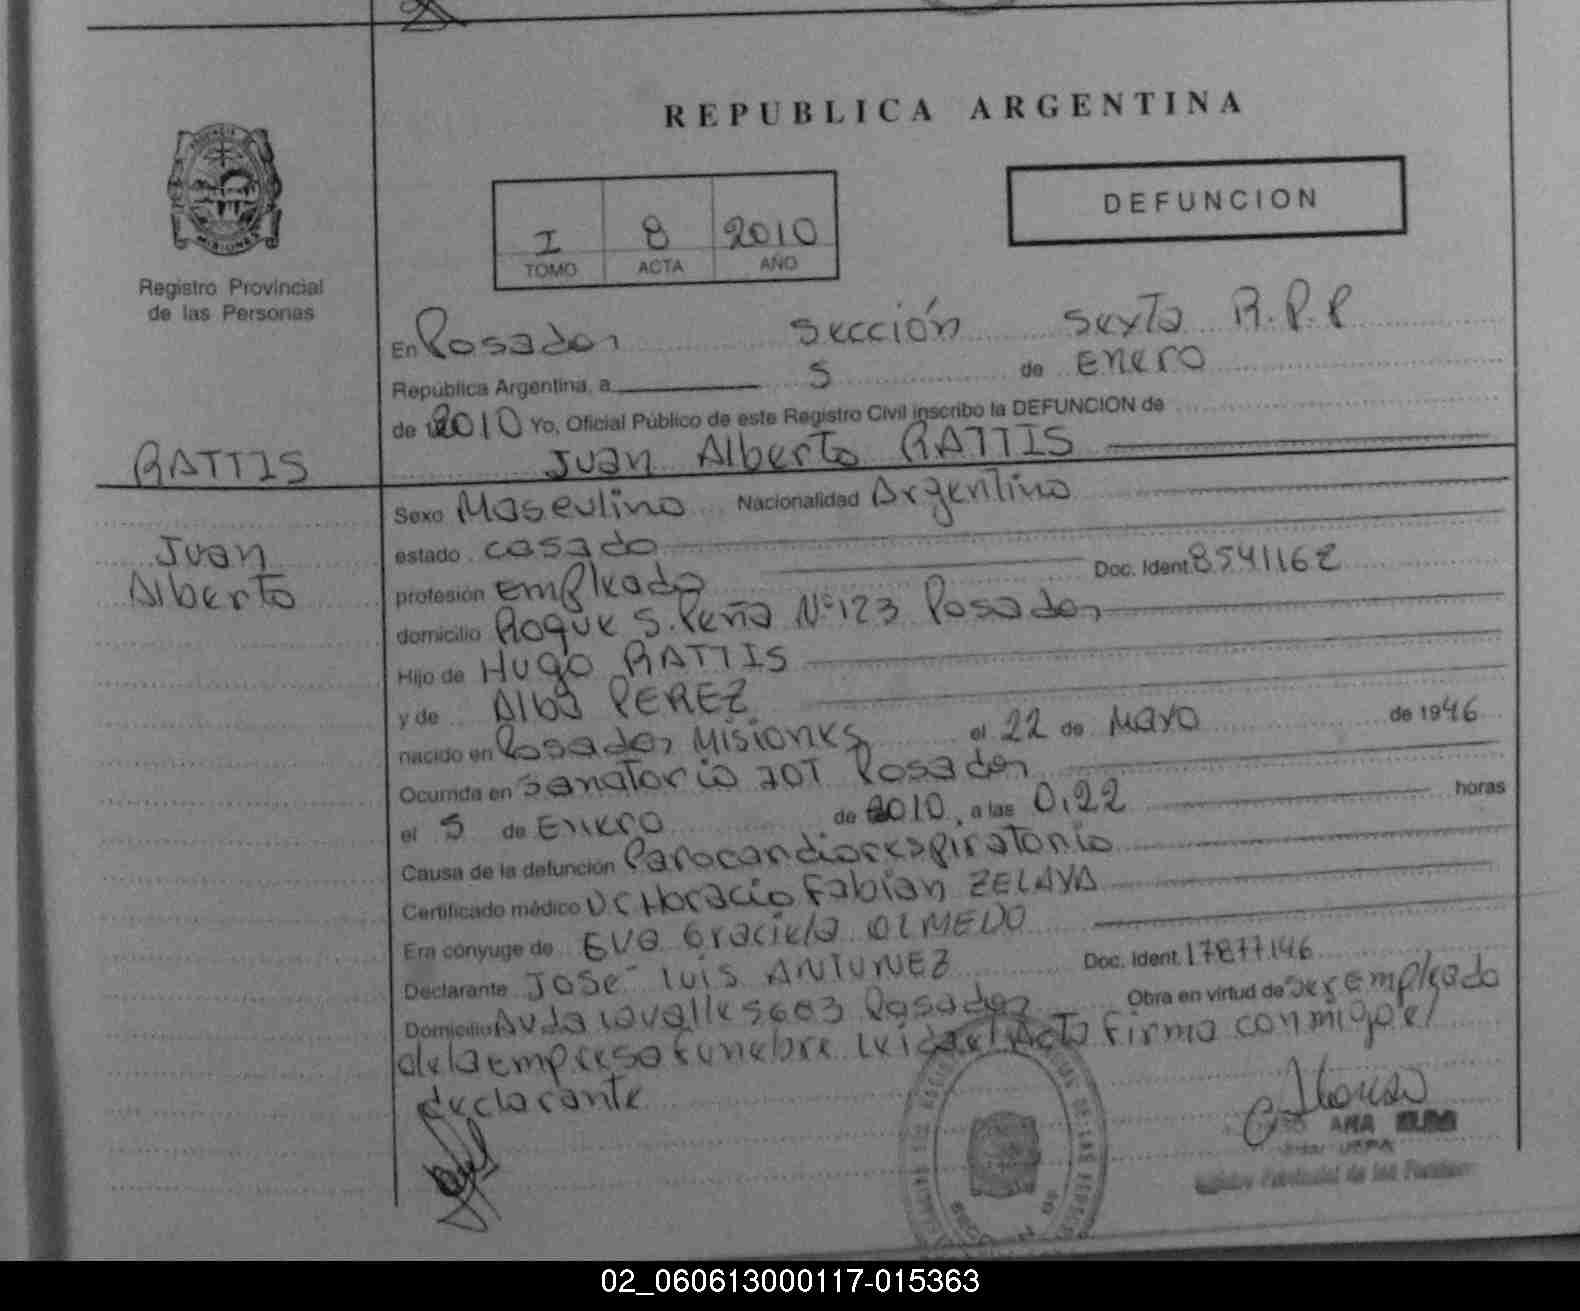 REPUBLICA ARGENTINA
DEFUNCION
I 8 2010
TOMO ACTA AÑO
MISIONES
Registro Provincial
de las Personas
En Posadas sección sexta R.P.P
República Argentina, a 5 de Enero
de 2010 Yo, Oficial Público de este Registro Civil inscribo la DEFUNCION de
Juan Alberto RATTIS
RATTIS
Juan
Alberto
Sexo Masculino Nacionalidad Argentino
estado casado
profesión empleado Doc. Ident. 8541162
domicilio Roque S. Peña Nº 123 Posadas
Hijo de Hugo RATTIS
y de Alba PEREZ
nacido en Posadas Misiones el 22 de Mayo de 1946
Ocurrida en Sanatorio IOT Posadas
el 5 de Enero de 2010, a las 0,22 horas
Causa de la defunción Parocardiorespiratorio
Certificado médico Dr Horacio Fabian ZELAYA
Era cónyuge de Eva Graciela OLMEDO
Declarante José Luis ANTUNEZ Doc. Ident. 17877146
Domicilio Avda Lavalle 5603 Posadas Obra en virtud de ser empleado
de la empresa funebre leida el Acta firma conmigo el
declarante
ANA
Registro Provincial de las Personas
02_060613000117-015363